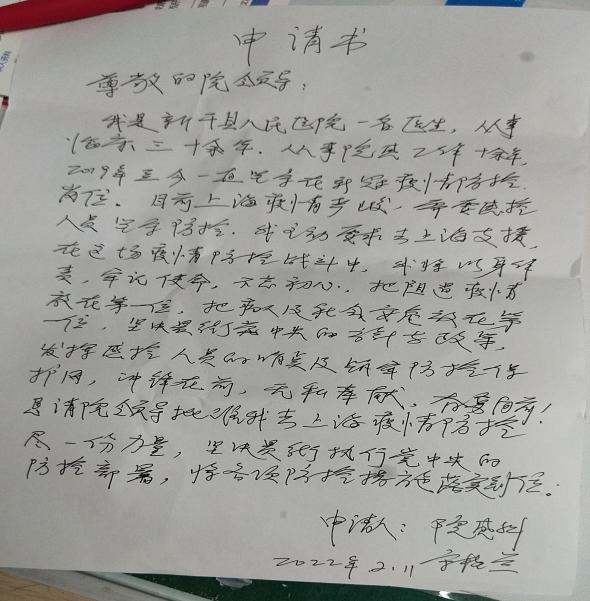 申请书
尊敬的院领导：
我是新干县人民医院一名医生，从事
临床三十余年，从事院感工作十余年，
2019年至今一直坚守在新冠疫情防控
岗位。目前上海疫情严峻，需要感控
人员坚守防控。我主动要求去上海支援，
在这场疫情防控战斗中，我将以身作
责，牢记使命，不忘初心，把阻遏疫情
放在第一位，把病人及社会安危放在第
一位，坚决贯彻党中央的方针与政策，
发挥感控人员的职责及筑牢防控保
护网，冲锋在前，无私奉献，奋勇向前！
恳请院领导批准我去上海疫情防控
尽一份力量，坚决贯彻执行党中央的
防控部署，将各项防控措施落实到位。
申请人：院感科
2022年 2.11